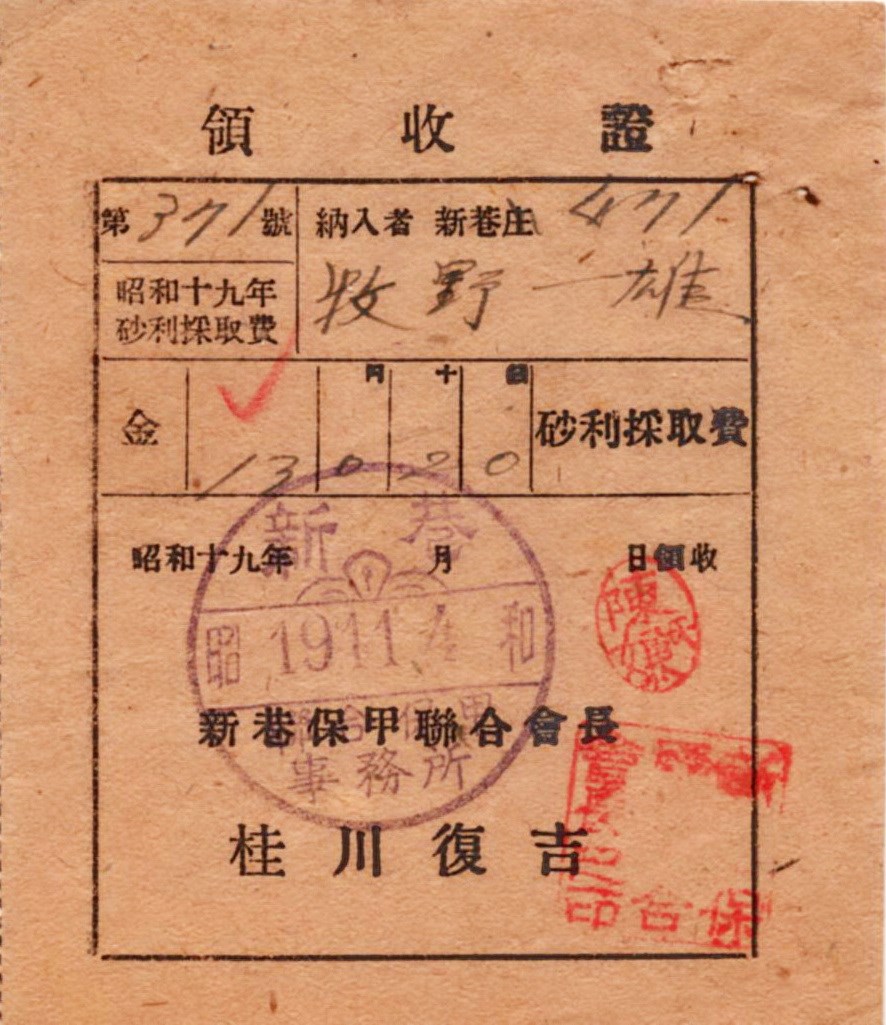 領收證
第371號
納入者 新巷庄 471
昭和十九年
砂利採取費
牧野一雄
金 130円2十0錢 砂利採取費
昭和十九年 月 日領收
新巷
昭 1911.4 和
聯合保甲
事務所
陳氏
新巷保甲聯合會長
桂川復吉
保合
印